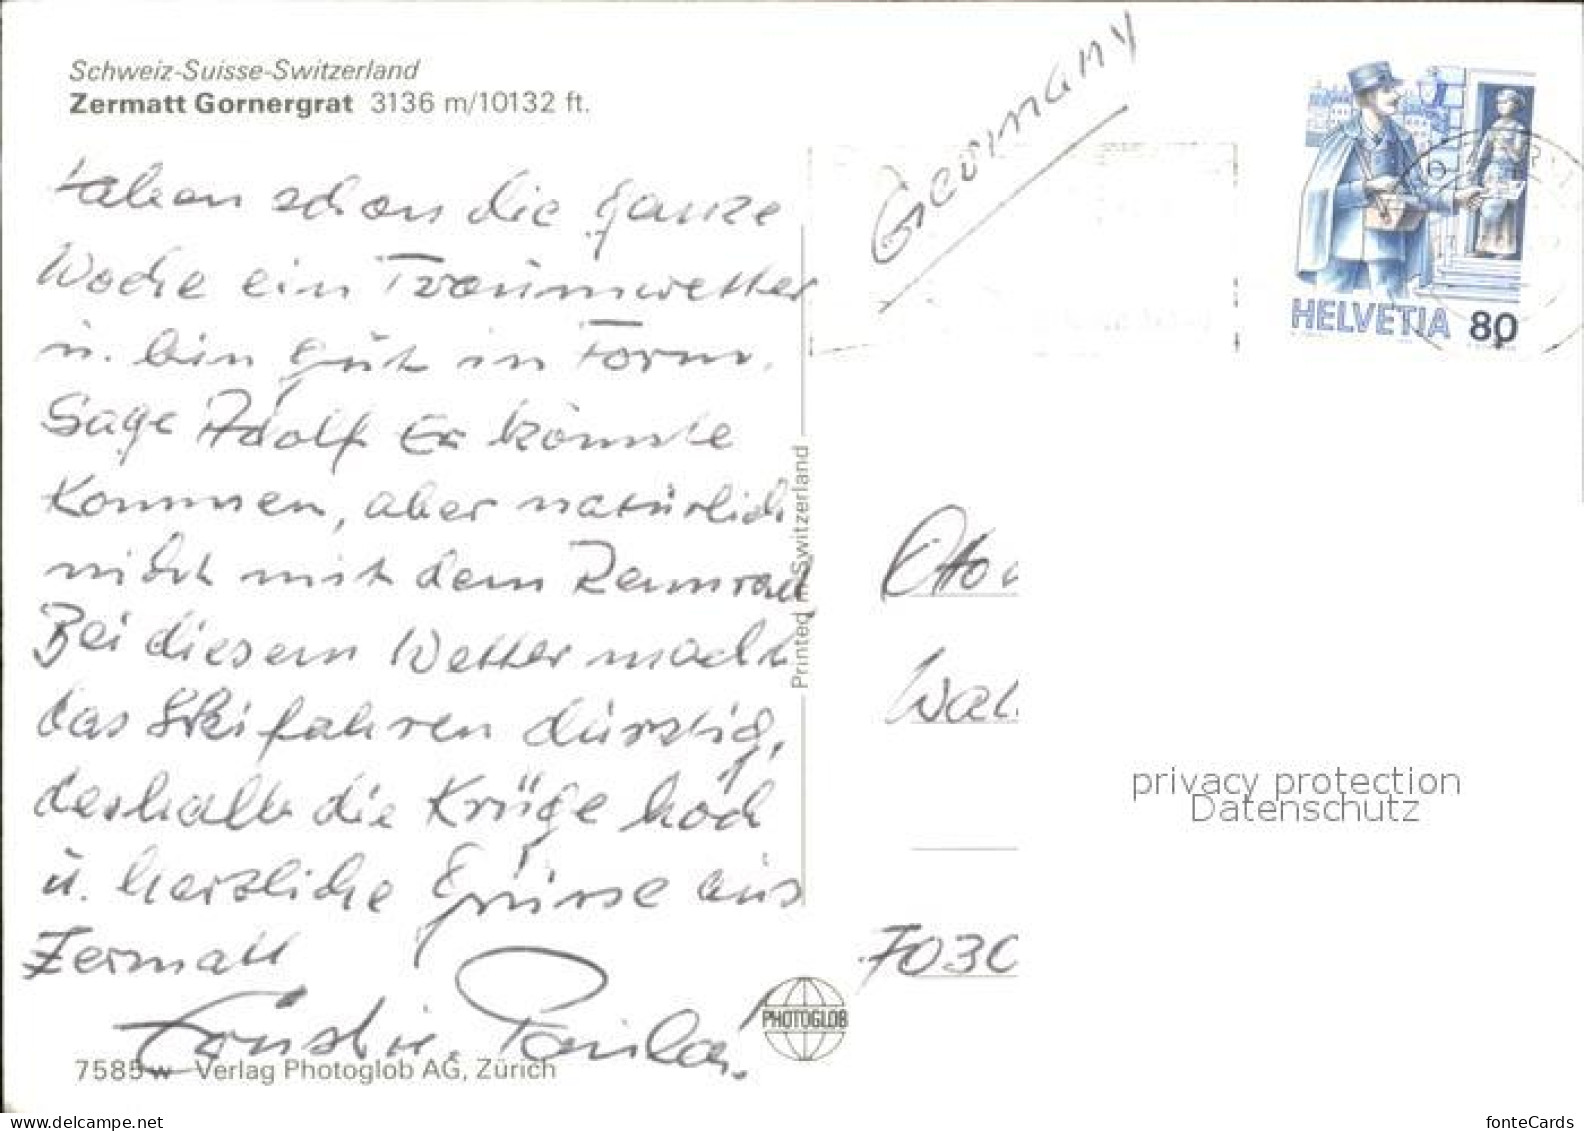 Schweiz-Suisse-Switzerland
Zermatt Gornergrat 3136 m/10132 ft.
Germany
HELVETIA 80
Haben schon die ganze
Woche ein Traumwetter
u. bin gut in Form.
Sage Adolf Er könnte
Kommen, aber natürlich
nicht mit dem Rennrad
Bei diesem Wetter macht
das Skifahren durstig,
deshalb die Krüge hoch
u. herzliche Grüsse aus
Zermatt
Printed in Switzerland
Otto
7030
PHOTOGLOB
7585 w Verlag Photoglob AG, Zürich
privacy protection
Datenschutz
www.delcampe.net
fonteCards